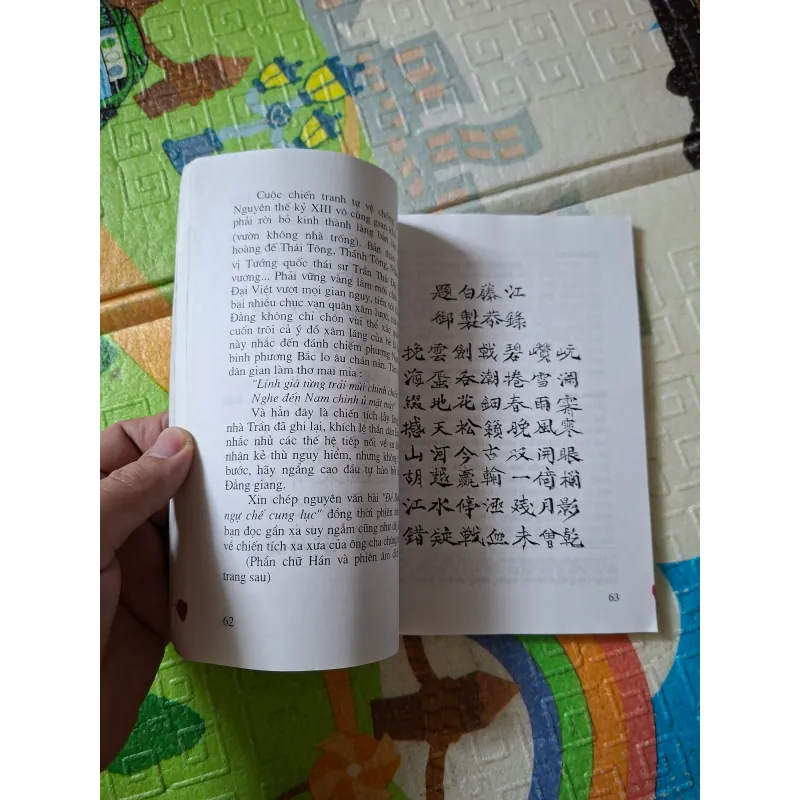 Cuộc chiến tranh tự vệ chống
Nguyên thế kỷ XIII vô cùng gian
phải rời bỏ kinh thành làng bản
(vườn không nhà trống). Bản thân
hoàng đế Thái Tông, Thánh Tông,
vị Tướng quốc thái sư Trần Thủ
vương... Phải vững vàng lắm mới
Đại Việt vượt mọi gian nguy, tiến
bai nhiều chục vạn quân xâm lược,
Đằng không chỉ chôn vùi thể xác
cuốn trôi cả ý đồ xâm lăng của
này nhắc đến đánh chiếm phương
binh phương Bắc lo âu chán nản.
dân gian làm thơ mai mỉa :
"Lính già từng trải mùi chinh
Nghe đến Nam chinh ủ mặt
Và hẳn đây là chiến tích lẫy
nhà Trần đã ghi lại, khích lệ thần dân
nhắc nhủ các thế hệ tiếp nối về
nhận kẻ thù nguy hiểm, nhưng không
bước, hãy ngẩng cao đầu tự hào
Đằng giang.
Xin chép nguyên văn bài "Đề
ngự chế cung lục" đồng thời phiên
bạn đọc gần xa suy ngẫm cũng như
về chiến tích xa xưa của ông cha
(Phần chữ Hán và phiên âm
trang sau)
62
題白藤江
御製恭錄
挽雲劍戟碧巑岏
海蜃吞潮捲雪瀾
綴地花鈿春雨霽
撼天松籟晚風寒
山河今古双開眼
胡越贏輸一倚欄
江水停涵殘月影
錯疑戰血未曾乾
63